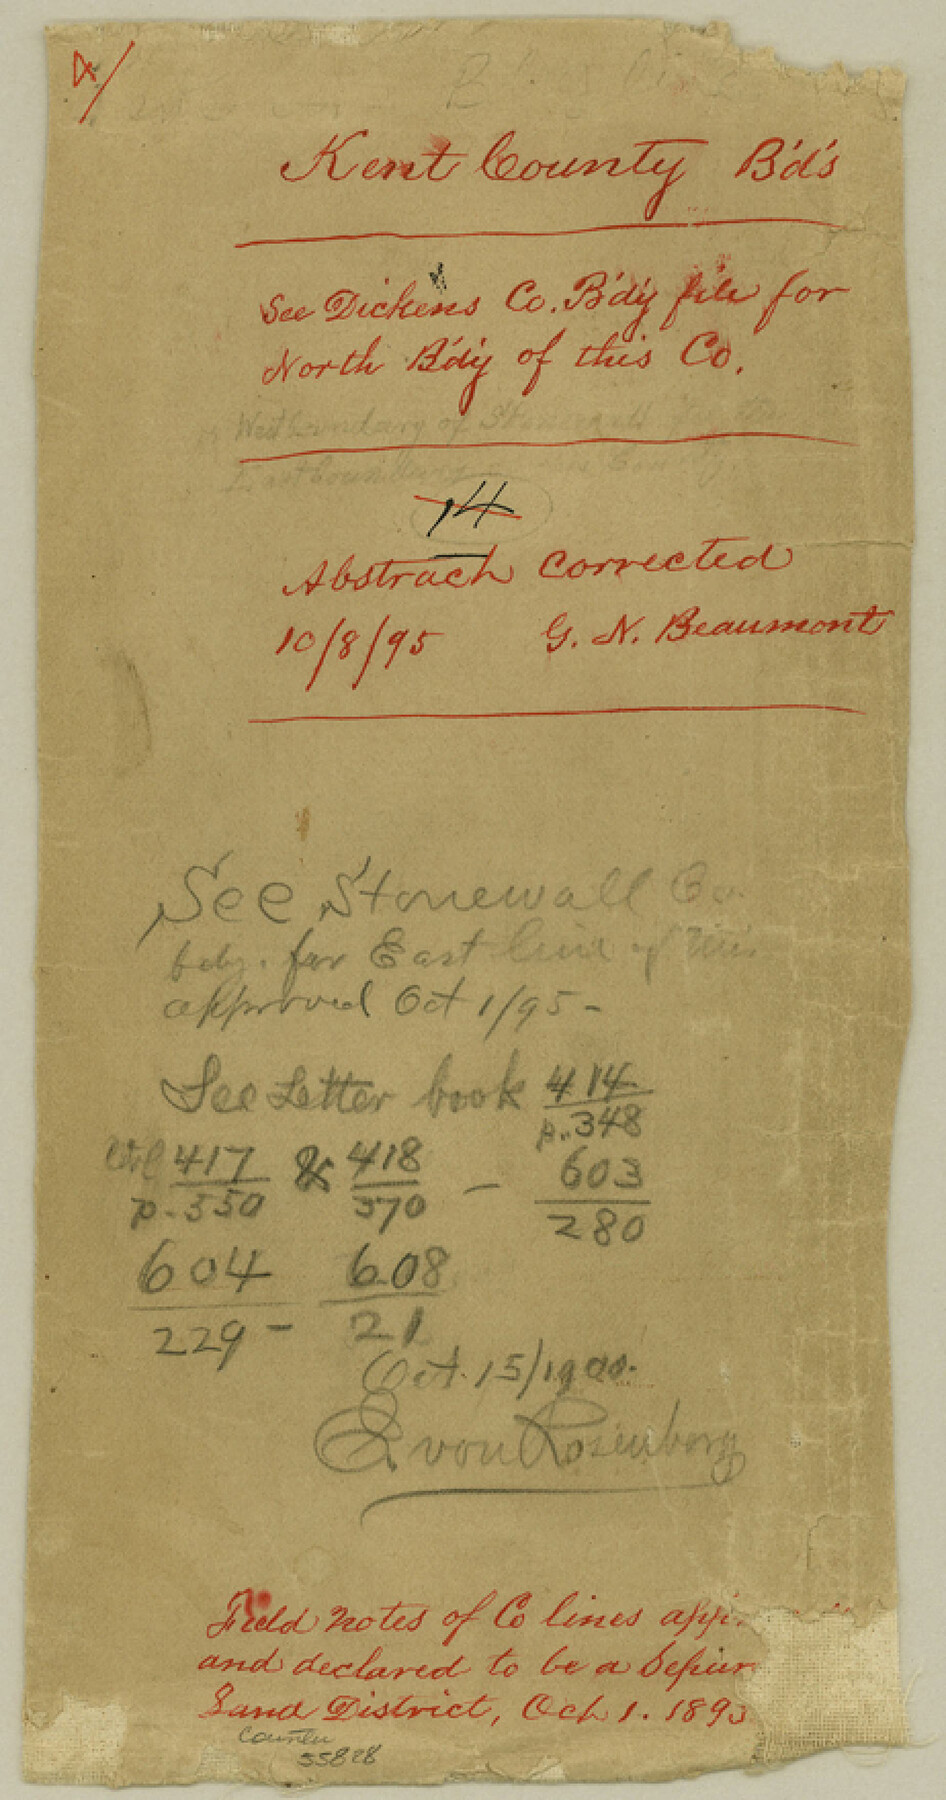 4/
Kent County B'd's
See Dickens Co. B'd'y file for
North B'd'y of this Co.
West boundary of Stonewall for the
East boundary this County.
14
Abstrach corrected
10/8/95 G. N. Beaumont
See Stonewall Co.
bdy. for East line of this
approved Oct 1/95 -
See Letter book 414
p. 348
Vol 417 & 418 - 603
p. 550 370 280
604 608
229 - 21
Oct. 15/1900.
E von Rosenberg
Field notes of Co lines app
and declared to be a Separ
Land District, Och 1. 1895
counter
55828